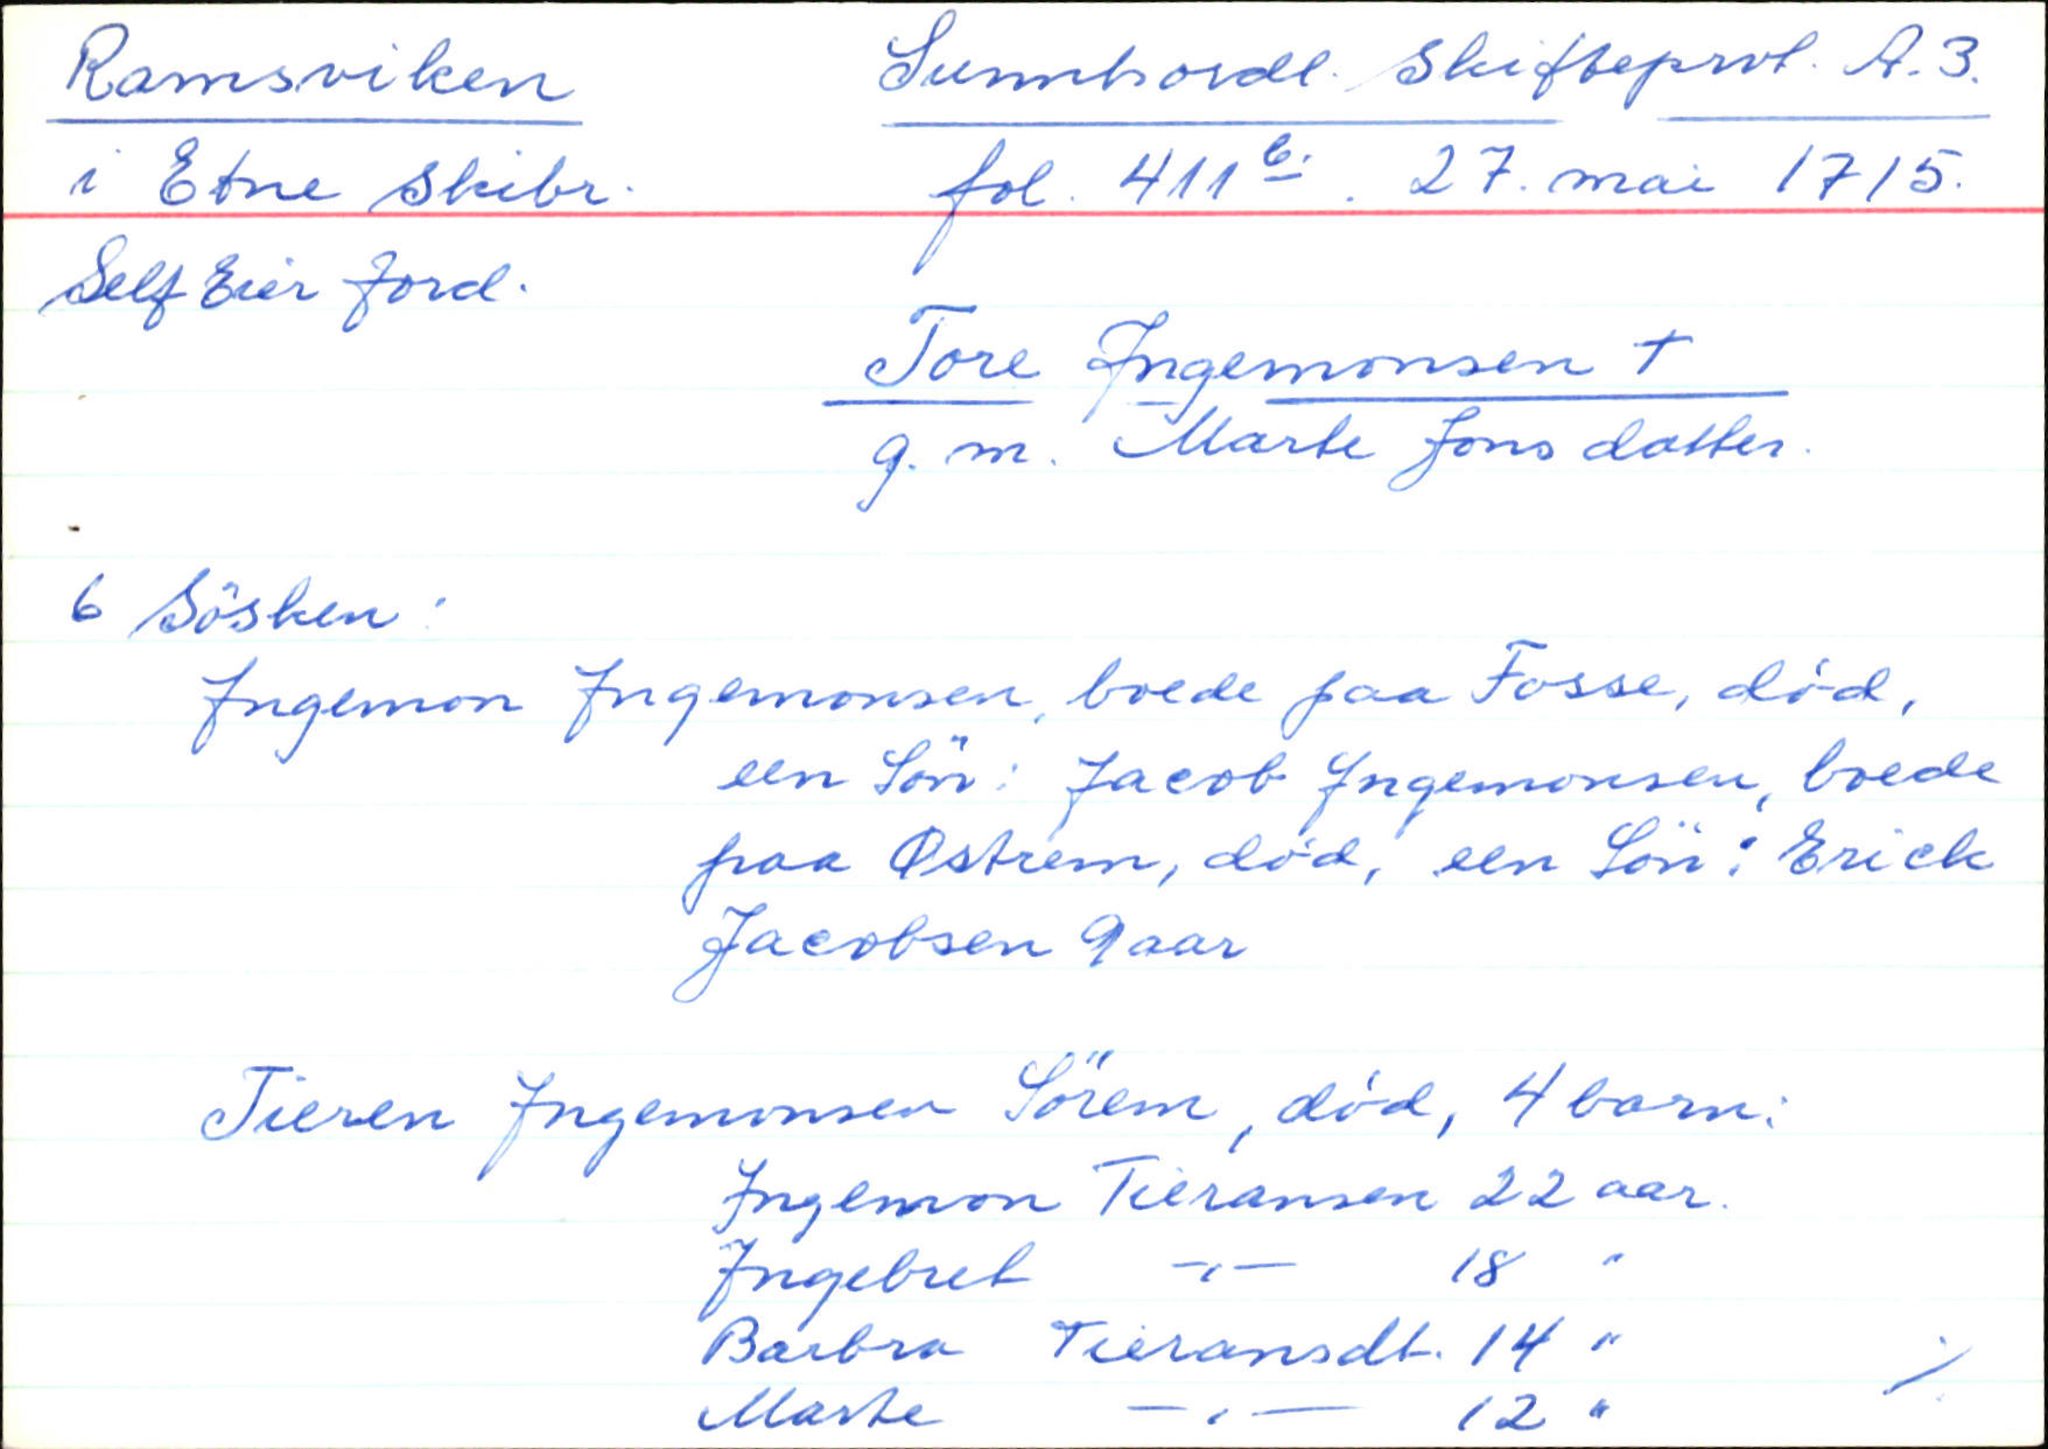 Ramsviken
Sunnhordl. Skifteprot. A.3.
i Etne Skibr.
fol. 411b. 27. mai 1715.
Self Eier Jord.
Tore Ingemonsen †
g. m. Marte Jonsdatter.
6 Sösken:
Ingemon Ingemonsen, boede paa Fosse, död,
een Sön: Jacob Ingemonsen, boede
paa Østrem, död, een Sön: Erick
Jacobsen 9 aar
Tieren Ingemonsen Sörem, död, 4 barn:
Ingemon Tieransen 22 aar.
Ingebret -"- 18 "
Barbra Tieransdt. 14 "
Marte -"- 12 "